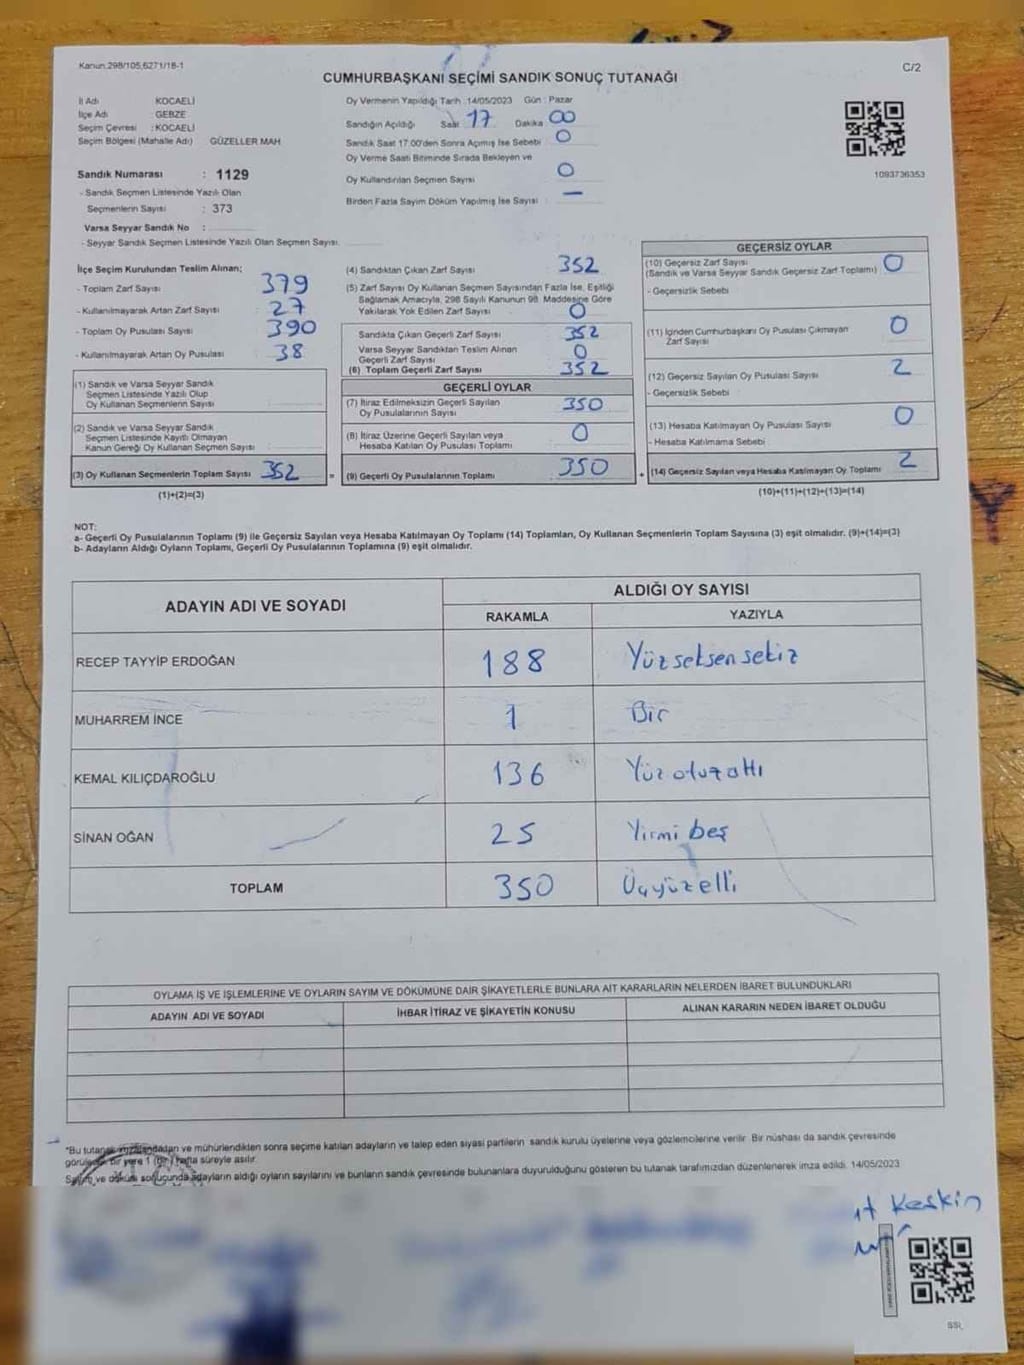 Kanun.298/105,6271/18-1
C/2
CUMHURBAŞKANI SEÇİMİ SANDIK SONUÇ TUTANAĞI
İl Adı KOCAELİ
İlçe Adı GEBZE
Seçim Çevresi : KOCAELİ
Seçim Bölgesi (Mahalle Adı) GÜZELLER MAH
Sandık Numarası : 1129
- Sandık Seçmen Listesinde Yazılı Olan
Seçmenlerin Sayısı : 373
Varsa Seyyar Sandık No :
- Seyyar Sandık Seçmen Listesinde Yazılı Olan Seçmen Sayısı.
Oy Vermenin Yapıldığı Tarih :14/05/2023 Gün : Pazar
Sandığın Açıldığı Saat 17 Dakika 00
Sandık Saat 17.00'den Sonra Açımış İse Sebebi 0
Oy Verme Saati Bitiminde Sırada Bekleyen ve
Oy Kullandırılan Seçmen Sayısı 0
Birden Fazla Sayım Döküm Yapılmış İse Sayısı : —
1093736353
İlçe Seçim Kurulundan Teslim Alınan;
- Toplam Zarf Sayısı 379
- Kullanılmayarak Artan Zarf Sayısı 27
- Toplam Oy Pusulası Sayısı 390
- Kullanılmayarak Artan Oy Pusulası 38
(1) Sandık ve Varsa Seyyar Sandık
Seçmen Listesinde Yazılı Olup
Oy Kullanan Seçmenlerin Sayısı
(2) Sandık ve Varsa Seyyar Sandık
Seçmen Listesinde Kayıtlı Olmayan
Kanun Gereği Oy Kullanan Seçmen Sayısı
(3) Oy Kullanan Seçmenlerin Toplam Sayısı 352
(1)+(2)=(3)
(4) Sandıktan Çıkan Zarf Sayısı : 352
(5) Zarf Sayısı Oy Kullanan Seçmen Sayısından Fazla İse, Eşitliği
Sağlamak Amacıyla, 298 Sayılı Kanunun 98. Maddesine Göre
Yakılarak Yok Edilen Zarf Sayısı 0
Sandıkta Çıkan Geçerli Zarf Sayısı 352
Varsa Seyyar Sandıktan Teslim Alınan
Geçerli Zarf Sayısı 0
(6) Toplam Geçerli Zarf Sayısı 352
GEÇERLİ OYLAR
(7) İtiraz Edilmeksizin Geçerli Sayılan
Oy Pusulalarının Sayısı 350
(8) İtiraz Üzerine Geçerli Sayılan veya
Hesaba Katılan Oy Pusulası Toplamı 0
=
(9) Geçerli Oy Pusulalarının Toplamı 350
+
GEÇERSİZ OYLAR
(10) Geçersiz Zarf Sayısı
(Sandık ve Varsa Seyyar Sandık Geçersiz Zarf Toplamı) 0
- Geçersizlik Sebebi
(11) İçinden Cumhurbaşkanı Oy Pusulası Çıkmayan
Zarf Sayısı 0
(12) Geçersiz Sayılan Oy Pusulası Sayısı 2
- Geçersizlik Sebebi
(13) Hesaba Katılmayan Oy Pusulası Sayısı 0
- Hesaba Katılmama Sebebi
(14) Geçersiz Sayılan veya Hesaba Katılmayan Oy Toplamı 2
(10)+(11)+(12)+(13)=(14)
NOT:
a- Geçerli Oy Pusulalarının Toplamı (9) ile Geçersiz Sayılan veya Hesaba Katılmayan Oy Toplamı (14) Toplamları, Oy Kullanan Seçmenlerin Toplam Sayısına (3) eşit olmalıdır. (9)+(14)=(3)
b- Adayların Aldığı Oyların Toplamı, Geçerli Oy Pusulalarının Toplamına (9) eşit olmalıdır.
ADAYIN ADI VE SOYADI
ALDIĞI OY SAYISI
RAKAMLA YAZIYLA
RECEP TAYYİP ERDOĞAN 188 Yüzseksensekiz
MUHARREM İNCE 1 Bir
KEMAL KILIÇDAROĞLU 136 Yüzotuzaltı
SİNAN OĞAN 25 Yirmi beş
TOPLAM 350 Üçyüzelli
OYLAMA İŞ VE İŞLEMLERİNE VE OYLARIN SAYIM VE DÖKÜMÜNE DAİR ŞİKAYETLERLE BUNLARA AİT KARARLARIN NELERDEN İBARET BULUNDUKLARI
ADAYIN ADI VE SOYADI İHBAR İTİRAZ VE ŞİKAYETİN KONUSU ALINAN KARARIN NEDEN İBARET OLDUĞU
*Bu tutanak ve mühürlendikten sonra seçime katılan adayların ve talep eden siyasi partilerin sandık kurulu üyelerine veya gözlemcilerine verilir. Bir nüshası da sandık çevresinde
bir yere 1 (bir) hafta süreyle asılır.
Sayım ve döküm sonucunda adayların aldığı oyların sayılarını ve bunların sandık çevresinde bulunanlara duyurulduğunu gösteren bu tutanak tarafımızdan düzenlenerek imza edildi. 14/05/2023
Keskin